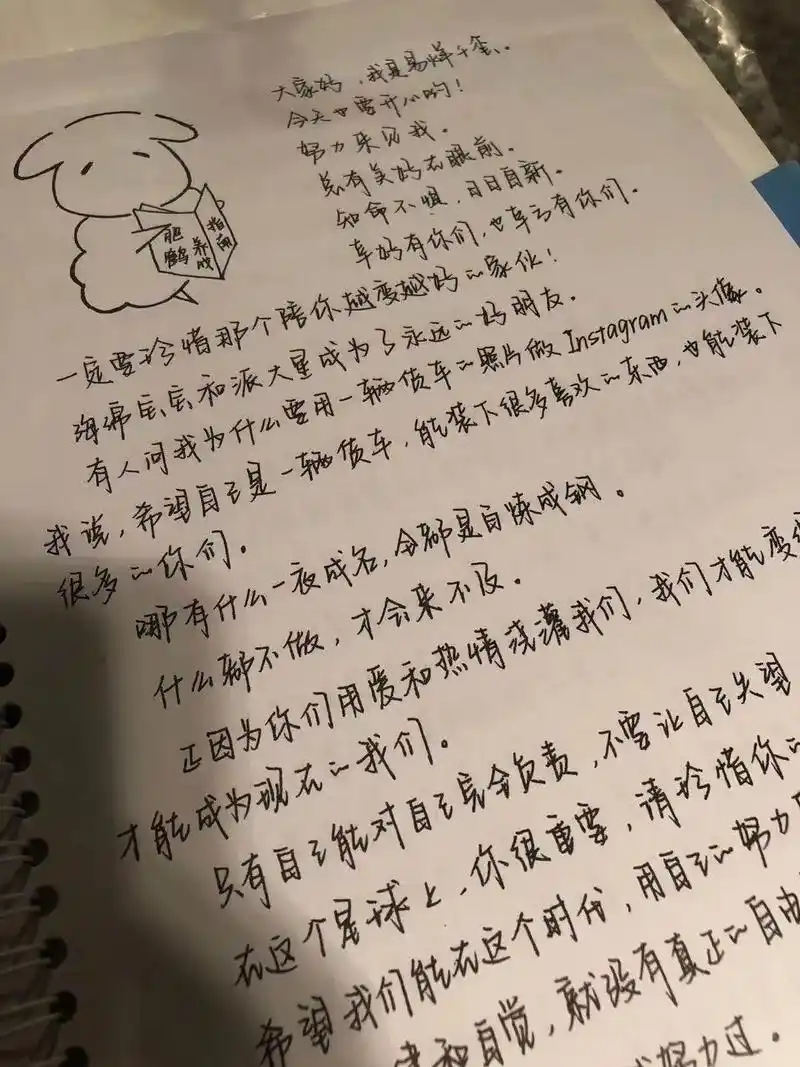 大家好，我是易烊千玺、
今天也要开心哟！
努力来见我。
总有美好在眼前。
知命不惧，日日自新。
幸好有你们，也幸亏有你们。
养成
指南
一定要珍惜那个陪你越变越好的家伙！
海绵宝宝和派大星成为了永远的好朋友。
有人问我为什么要用一辆货车的照片做Instagram的头像。
我说，希望自己是一辆货车，能装下很多喜欢的东西，也能装下
很多的你们。
哪有什么一夜成名，全都是百炼成钢。
什么都不做，才会来不及。
正因为你们用爱和热情浇灌我们，我们才能变
才能成为现在的我们。
只有自己能对自己完全负责，不要让自己失望
在这个星球上，你很重要，请珍惜你的
希望我们能在这个时代，用自己的努力
和自觉，就没有真正的自由
努力过。